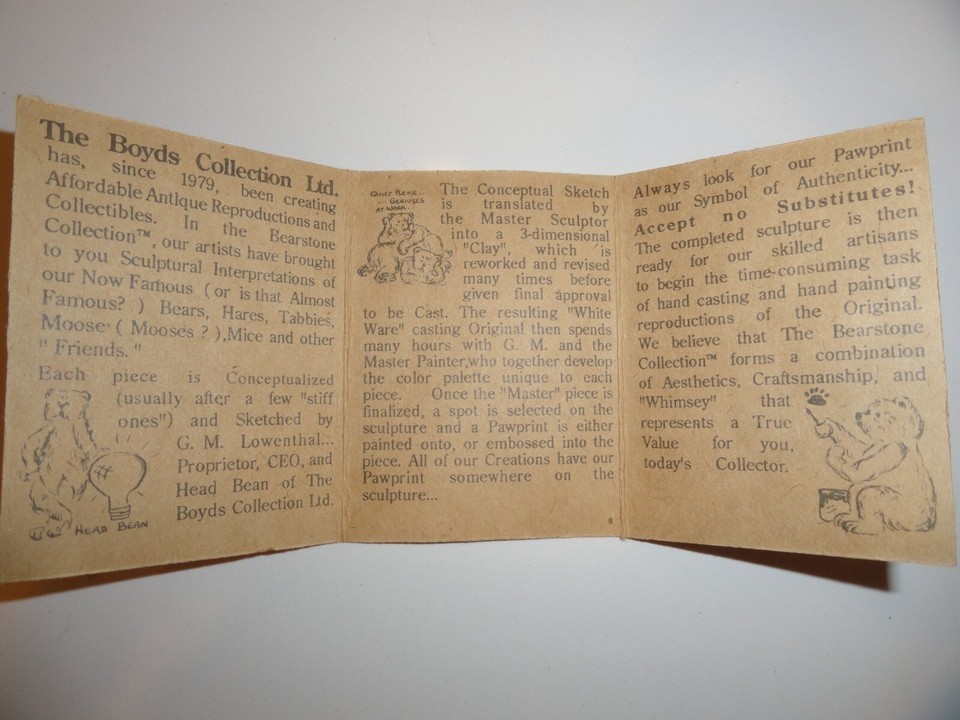 The Boyds Collection Ltd.
has, since 1979, been creating
Affordable Antique Reproductions and
Collectibles. In the Bearstone
Collection™, our artists have brought
to you Sculptural Interpretations of
our Now Famous ( or is that Almost
Famous? ) Bears, Hares, Tabbies,
Moose ( Mooses ? ),Mice and other
" Friends. "
Each piece is Conceptualized
(usually after a few "stiff
ones") and Sketched by
G. M. Lowenthal...
Proprietor, CEO, and
Head Bean of The
Boyds Collection Ltd.
HEAD BEAN
QUIET PLEASE...
... GENIUSES
AT WORK
The Conceptual Sketch
is translated by
the Master Sculptor
into a 3-dimensional
"Clay", which is
reworked and revised
many times before
given final approval
to be Cast. The resulting "White
Ware" casting Original then spends
many hours with G. M. and the
Master Painter,who together develop
the color palette unique to each
piece. Once the "Master" piece is
finalized, a spot is selected on the
sculpture and a Pawprint is either
painted onto, or embossed into the
piece. All of our Creations have our
Pawprint somewhere on the
sculpture...
Always look for our Pawprint
as our Symbol of Authenticity...
Accept no Substitutes!
The completed sculpture is then
ready for our skilled artisans
to begin the time-consuming task
of hand casting and hand painting
reproductions of the Original.
We believe that The Bearstone
Collection™ forms a combination
of Aesthetics, Craftsmanship, and
"Whimsey" that
represents a True
Value for you,
today's Collector.